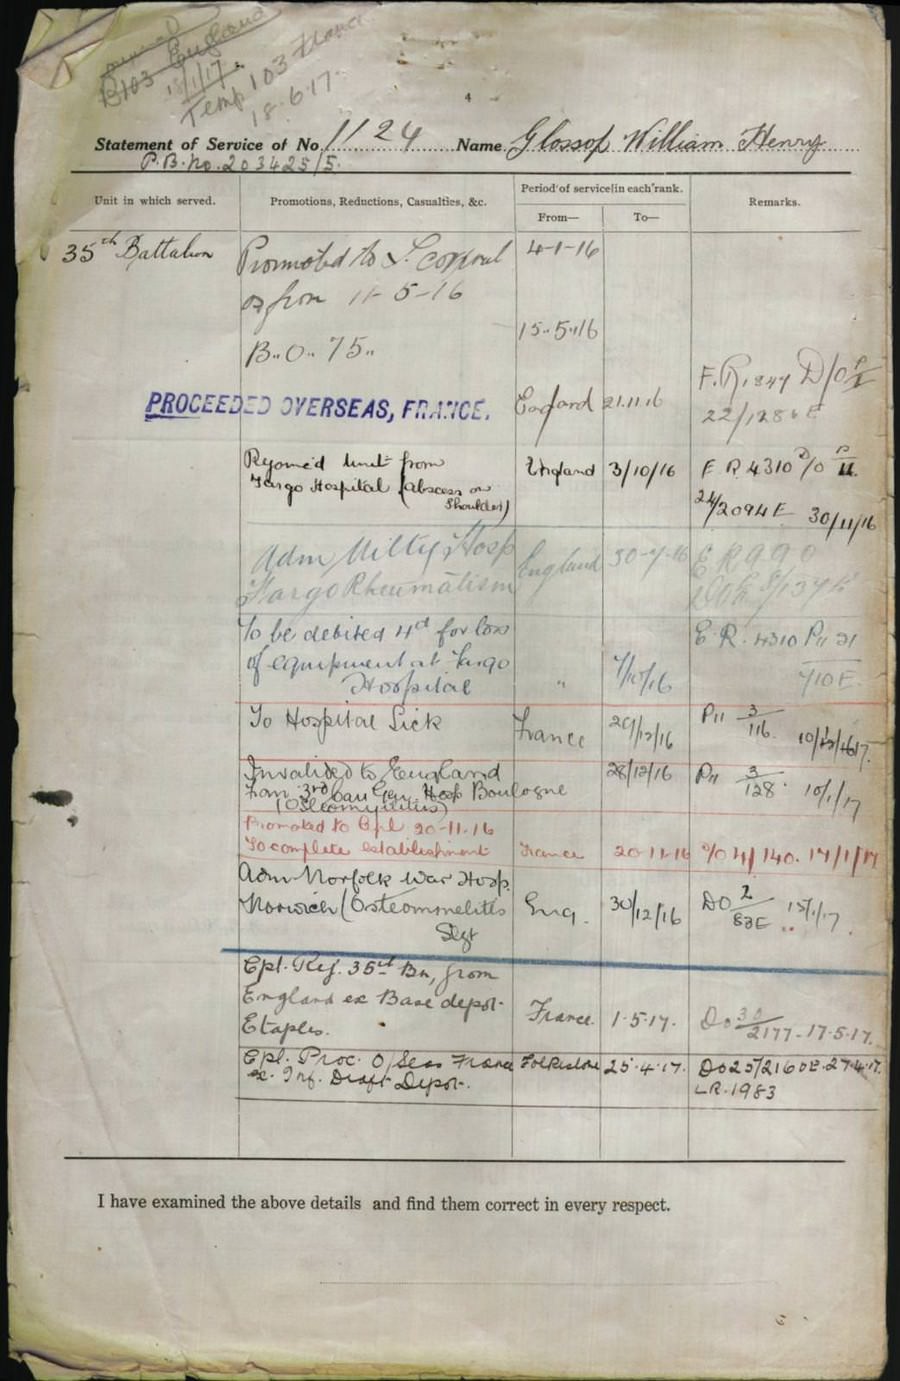 B103 England
18/1/17.
Temp 103 France
18.6.17.
4
Statement of Service of No. 1124 Name Glossop William Henry
P.B.No.203425/5.
Unit in which served.
Promotions, Reductions, Casualties, &c.
Period of service in each rank.
From—
To—
Remarks.
35th Battalion
Promoted to L. corporal
as from 11-5-16
4-1-16
B..O.. 75..
15..5..16
PROCEEDED OVERSEAS, FRANCE.
England 21.11.16
F.R 1847 D/O
22/1286E
Rejoined Unit from
Fargo Hospital (abscess on
Shoulder)
England 3/10/16
E R 4310 D/O P II
24/2094E 30/11/16
Adm Milty Hosp
Fargo Rheumatism
England 30-7-16
E R 990
To be debited 4d for loss
of equipment at Fargo
Hospital
" 7/10/16
E.R. 4310 P11 21
710E
To Hospital Sick
France 29/12/16
P11 3/116
Invalided to England
From 3rd Can Gen. Hosp Boulogne
(Osteomyelitis)
28/12/16
P11 3/128 10/1/17
Promoted to Cpl 20-11-16
To complete establishment
France 20-11-16
D/O 4/140. 17/1/17
Adm Norfolk War Hosp.
Norwich (Osteommelitis
Slgt
Eng. 30/12/16
DO 2/83E 15/1/17
Cpl. Rej. 35th Bn, from
England ex Base depot
Etaples.
France. 1.5.17.
Do 30/2177 - 17.5.17.
Cpl. Proc. O/Seas France
ex. Inf. Draft Depot.
Folkestone 25.4.17.
Do 25/2160E. 27.4.17.
LR.1983
I have examined the above details and find them correct in every respect.